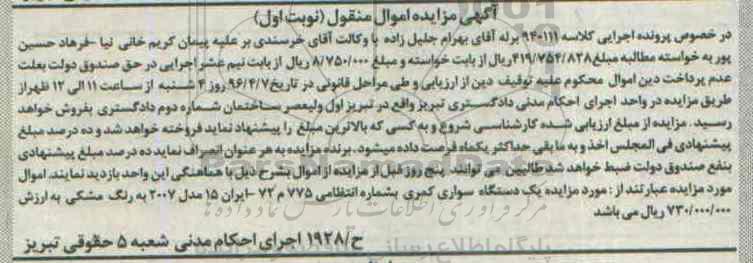 آگهی مزایده اموال منقول (نوبت اول)
در خصوص پرونده اجرایی کلاسه ۹۴۰۱۱۱ برله آقای بهرام جلیل زاده با وکالت آقای خرسندی بر علیه پیمان کریم خانی نیا -فرهاد حسین
پور به خواسته مطالبه مبلغ ۴۱۹/۷۵۴/۸۲۸ ریال از بابت خواسته و مبلغ ۸/۷۵۰/۰۰۰ ریال از بابت نیم عشر اجرایی در حق صندوق دولت بعلت
عدم پرداخت دین اموال محکوم علیه توقیف دین از ارزیابی و طی مراحل قانونی در تاریخ ۹۶/۴/۷ روز ۴ شنبه از ساعت ۱۱ الی ۱۲ ظهر از
طریق مزایده در واحد اجرای احکام مدنی دادگستری تبریز واقع در تبریز اول ولیعصر ساختمان شماره دوم دادگستری بفروش خواهد
رسید . مزایده از مبلغ ارزیابی شده کارشناسی شروع و به کسی که بالاترین مبلغ را پیشنهاد نماید فروخته خواهد شد و ده درصد مبلغ
پیشنهادی فی المجلس اخذ و به ما بقی حداکثر یکماه فرصت داده میشود . برنده مزایده به هر عنوان انصراف نماید ده درصد مبلغ پیشنهادی
بنفع صندوق دولت ضبط خواهد شد طالبین می توانند پنج روز قبل از مزایده از اموال بشرح ذیل با هماهنگی این واحد بازدید نمایند. اموال
مورد مزایده عبارتند از : مورد مزایده یک دستگاه سواری کمری بشماره انتظامی ۷۷۵ م ۷۲ -ایران ۱۵ مدل ۲۰۰۷ به رنگ مشکی به ارزش
۷۳۰/۰۰۰/۰۰۰ ریال می باشد
ح/۱۹۲۸ اجرای احکام مدنی شعبه ۵ حقوقی تبریز